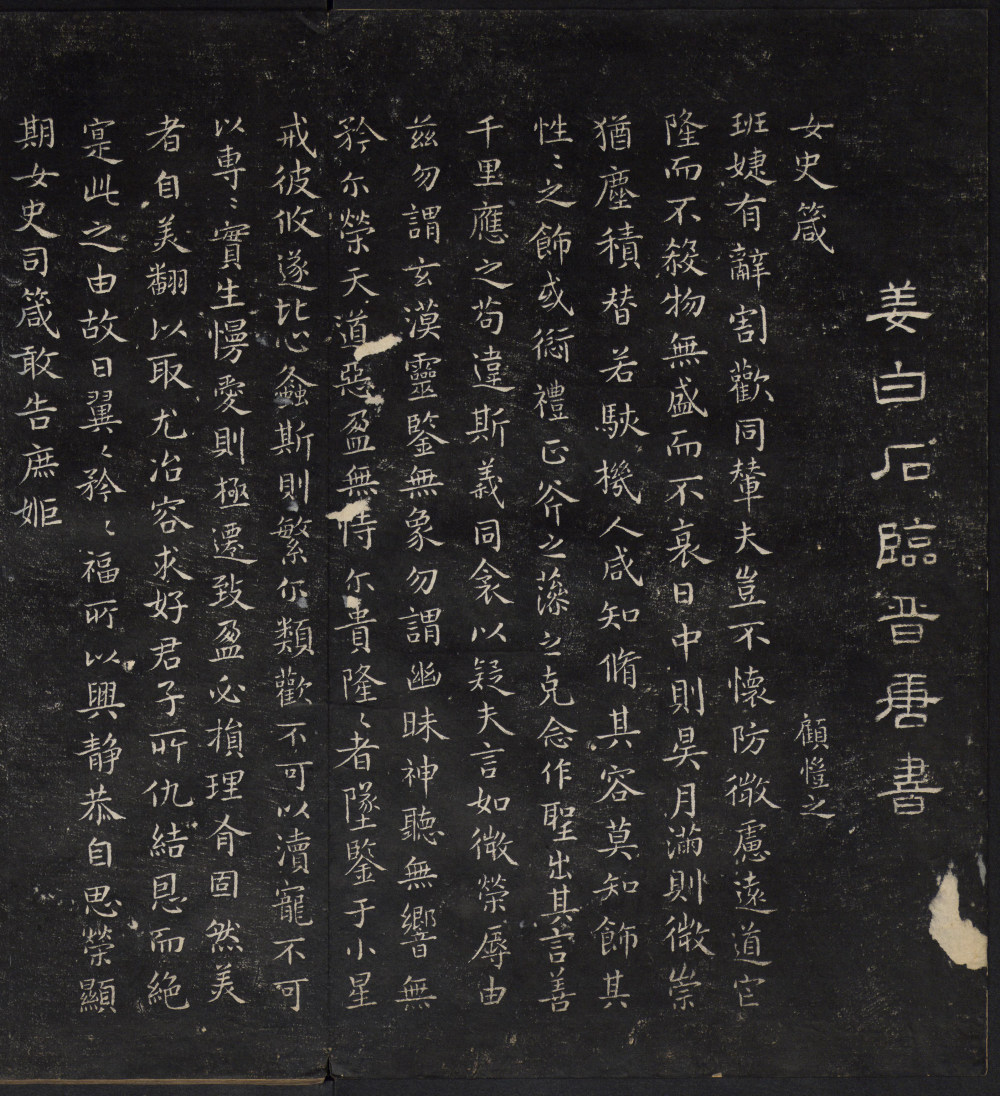 姜白石臨晉唐書
女史箴 顧愷之
班婕有辭割歡同輦夫豈不懷防微慮遠道它
隆而不殺物無盛而不衰日中則昃月滿則微崇
猶塵積替若駭機人咸知脩其容莫知飾其
性〻之飾或愆禮正斧之藻之克念作聖出其言善
千里應之苟違斯義同衾以疑夫言如微榮辱由
茲勿謂玄漠靈鑒無象勿謂幽昧神聽無響無
矜尔榮天道惡盈無恃尔貴隆〻者墜鑒于小星
戒彼攸遂比心螽斯則繁尔類歡不可以瀆寵不可
以專〻實生慢愛則極遷致盈必損理有固然美
者自美翩以取尤冶容求好君子所仇結恩而絕
寔此之由故曰翼〻矜〻福所以興靜恭自思榮顯
期女史司箴敢告庶姬